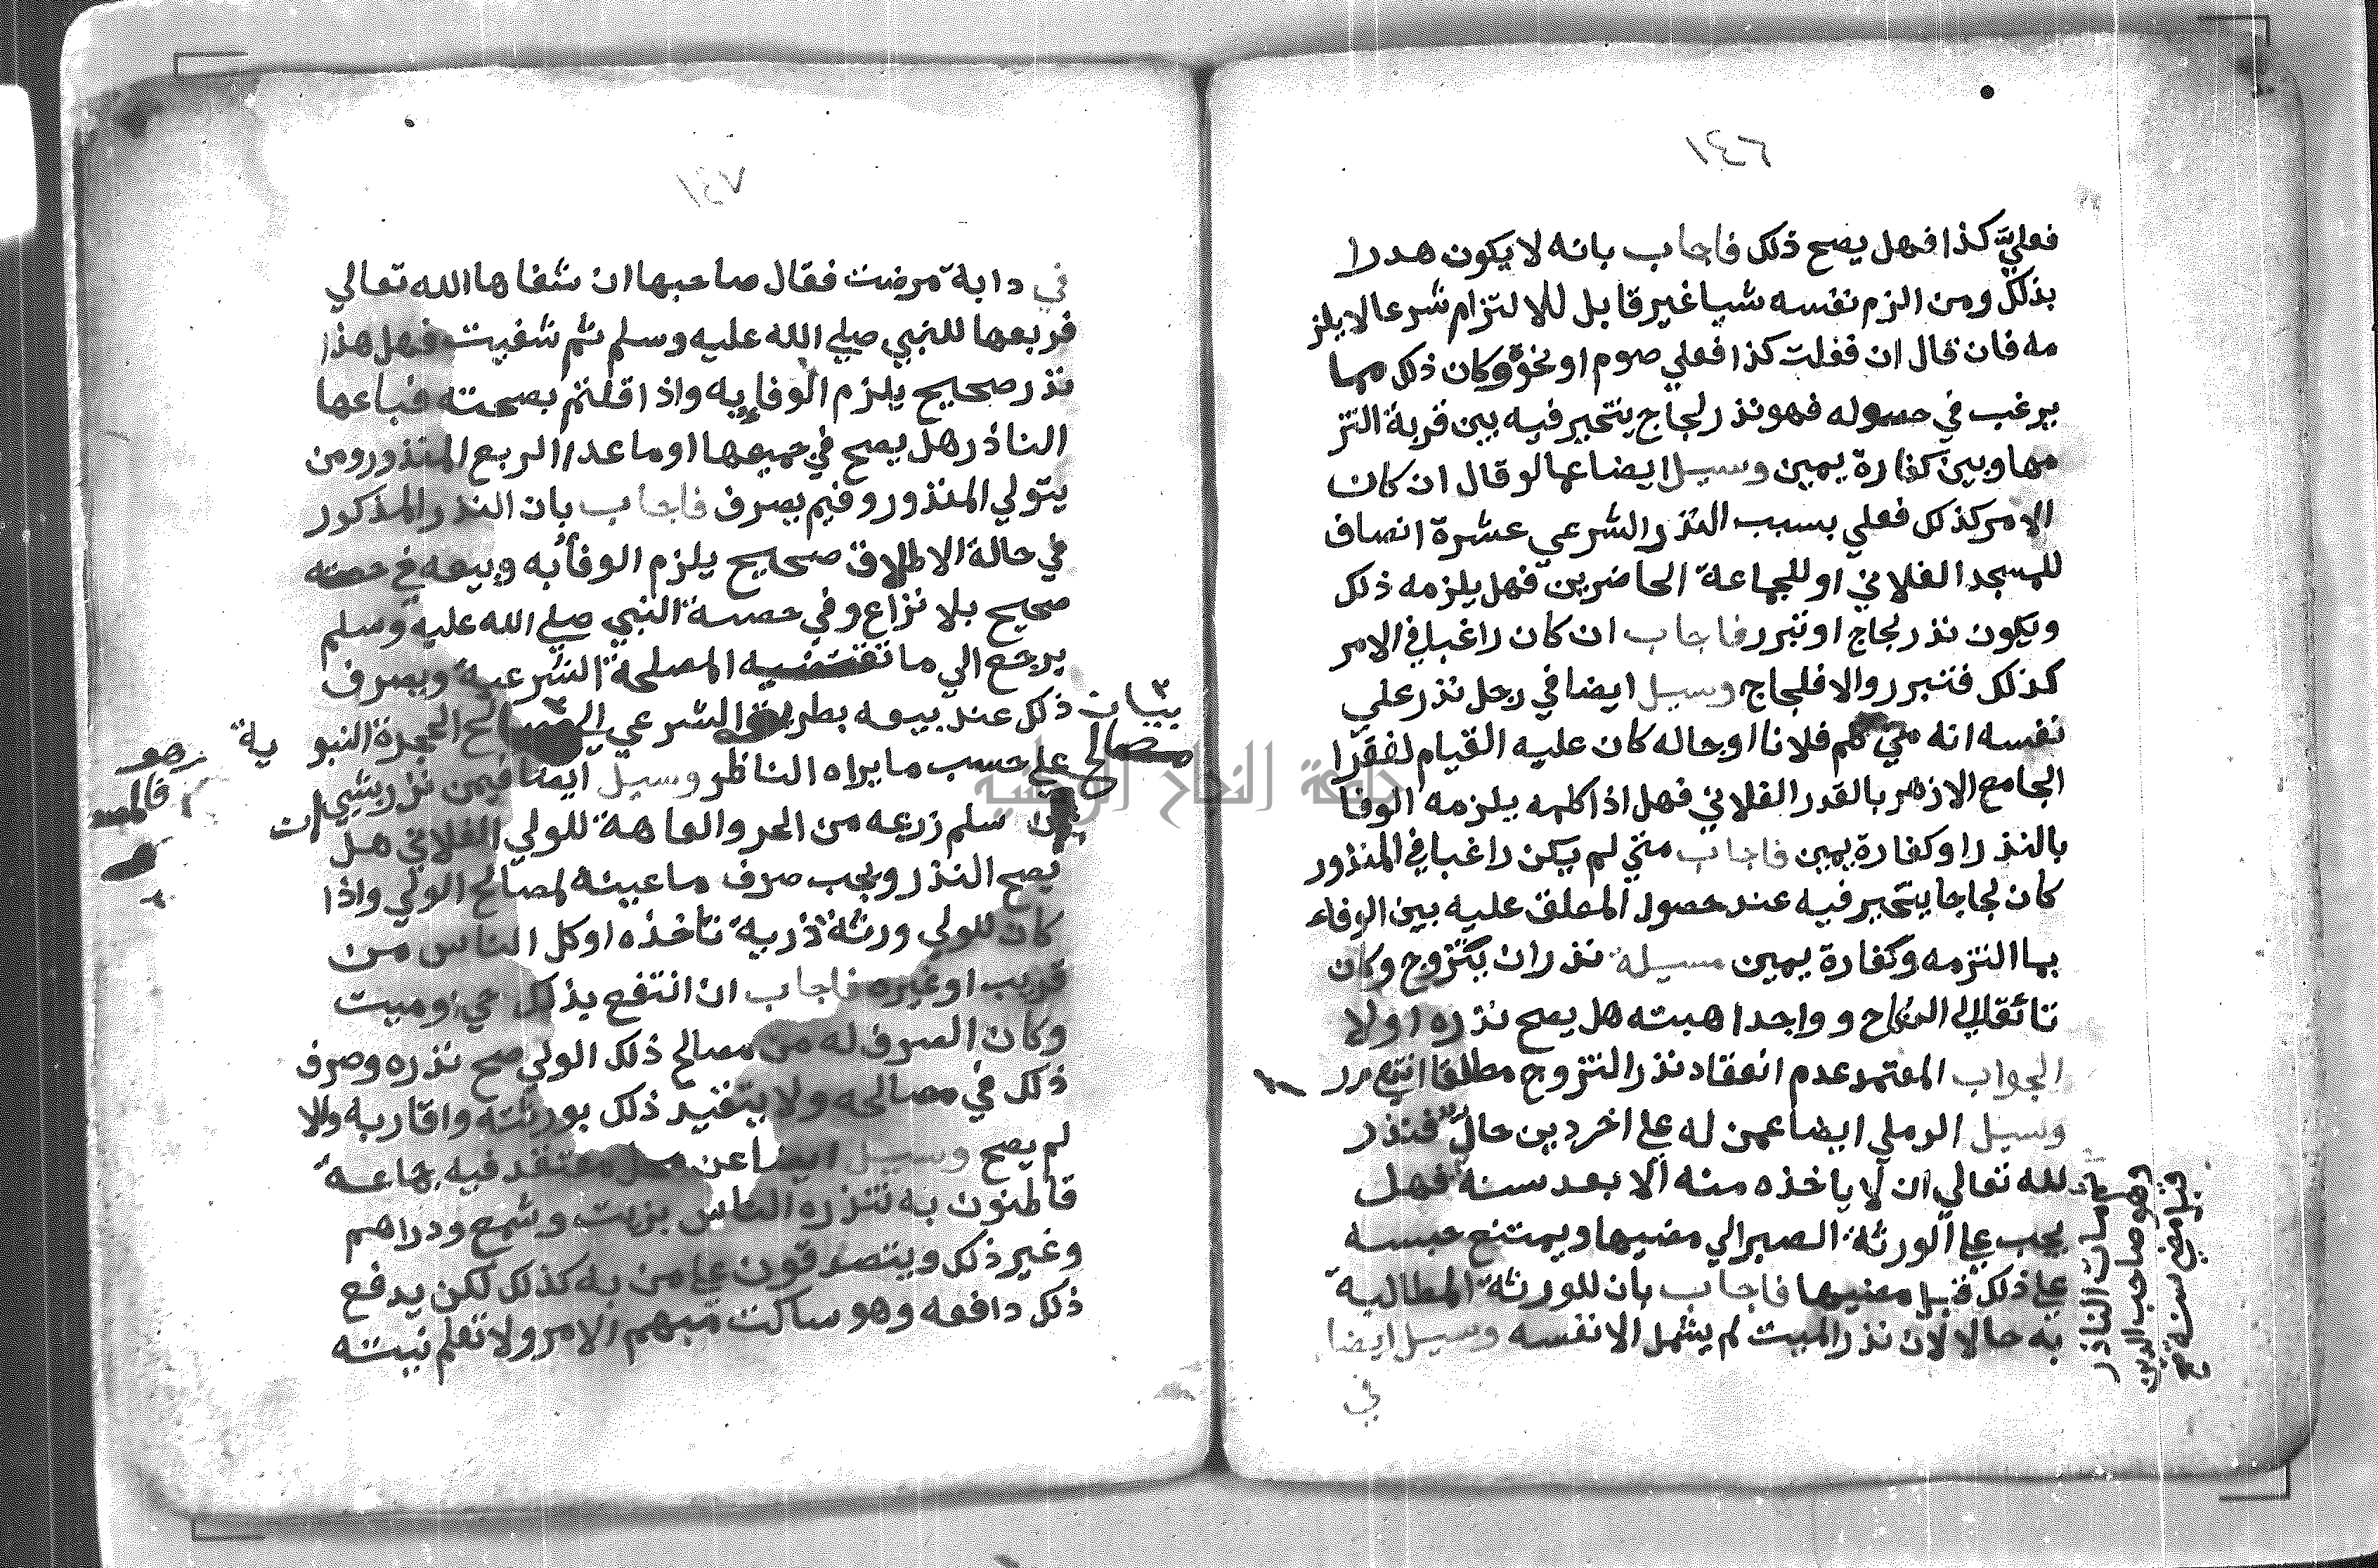 ١٤٦
فعليّ كذا فهل يصح ذلك فاجاب بانه لا يكون هدرا
بذلك ومن الزم نفسه شيا غير قابل للالتزام شرعا لا يلز
مه فان قال ان فعلت كذا فعلي صوم او نحوه وكان ذلك مما
يرغب في حصوله فهو نذر لجاج يتخير فيه بين قربة التز
مها وبين كفارة يمين وسيل ايضا عما لو قال ان كان
الامر كذلك فعلي بسبب النذر الشرعي عشرة انصاف
للمسجد الفلاني او للجماعة الحاضرين فهل يلزمه ذلك
ويكون نذر لجاج او تبرر فاجاب ان كان راغبا في الامر
كذلك فتبرر والا فلجاج وسيل ايضا في رجل نذر علي
نفسه انه متي كلم فلانا او حاله كان عليه القيام لفقرا
الجامع الازهر بالقدر الفلاني فهل اذا كلمه يلزمه الوفا
بالنذر او كفارة يمين فاجاب متي لم يكن راغبا في المنذور
كان لجاجا يتخير فيه عند حصول المعلق عليه بين الوفاء
بما التزمه وكفارة يمين مسيلة نذر ان يتزوج وكان
تائقا الي النكاح وواجدا هبته هل يصح نذره او لا
الجواب المعتمد عدم انعقاد نذر التزوج مطلقا انتهي م ر
وسيل الرملي ايضا عمن له علي اخر دين حالّ فنذر
لله تعالي ان لا ياخذه منه الا بعد سنة فهل
يجب علي الورثة الصبر الي مضيها ويمتنع حبسه
علي ذلك قبل مضيها فاجاب بان للورثة المطالبة
به حالا لان نذر الميت لم يشمل الا نفسه وسيل ايضا
في
مات الناذر
وهو صاحب الدين
قبل مضي سنة صح
١٤٧
في دابة مرضت فقال صاحبها ان شفاها الله تعالي
فربعها للنبي صلي الله عليه وسلم ثم شفيت فهل هذا
نذر صحيح يلزم الوفا به واذا قلتم بصحته فباعها
الناذر هل يصح في جميعها او ما عدا الربع المنذور ومن
يتولي المنذور وفيم يصرف فاجاب بان النذر المذكور
في حالة الاطلاق صحيح يلزم الوفا به وبيعه في حصته
صحيح بلا نزاع وفي حصة النبي صلي الله عليه وسلم
يرجع الي ما تقتضيه المصلحة الشرعية ويصرف
ذلك عند بيعه بطريقه الشرعي الي مصالح الحجرة النبو ية
علي حسب ما يراه الناظر وسيل ايضا فيمن نذر بشي ان
سلم زرعه من الحر والعاهة للولي الفلاني هل
يصح النذر ويجب صرف ما عينه لمصالح الولي واذا
كان للولي ورثة ذرية تأخذه او كل الناس من
قريب او غيره فاجاب ان انتفع بذلك حي او ميت
وكان الصرف له من مصالح ذلك الولي صح نذره وصرف
ذلك في مصالحه ولا يتقيد ذلك بورثته واقاربه والا
لم يصح وسيل ايضا عن محل معتقد فيه جماعة
قاطنون به تنذره الناس بزيت وشمع ودراهم
وغير ذلك ويتصدقون علي من به كذلك لكن يدفع
ذلك دافعه وهو ساكت مبهم الامر ولا تعلم نيته